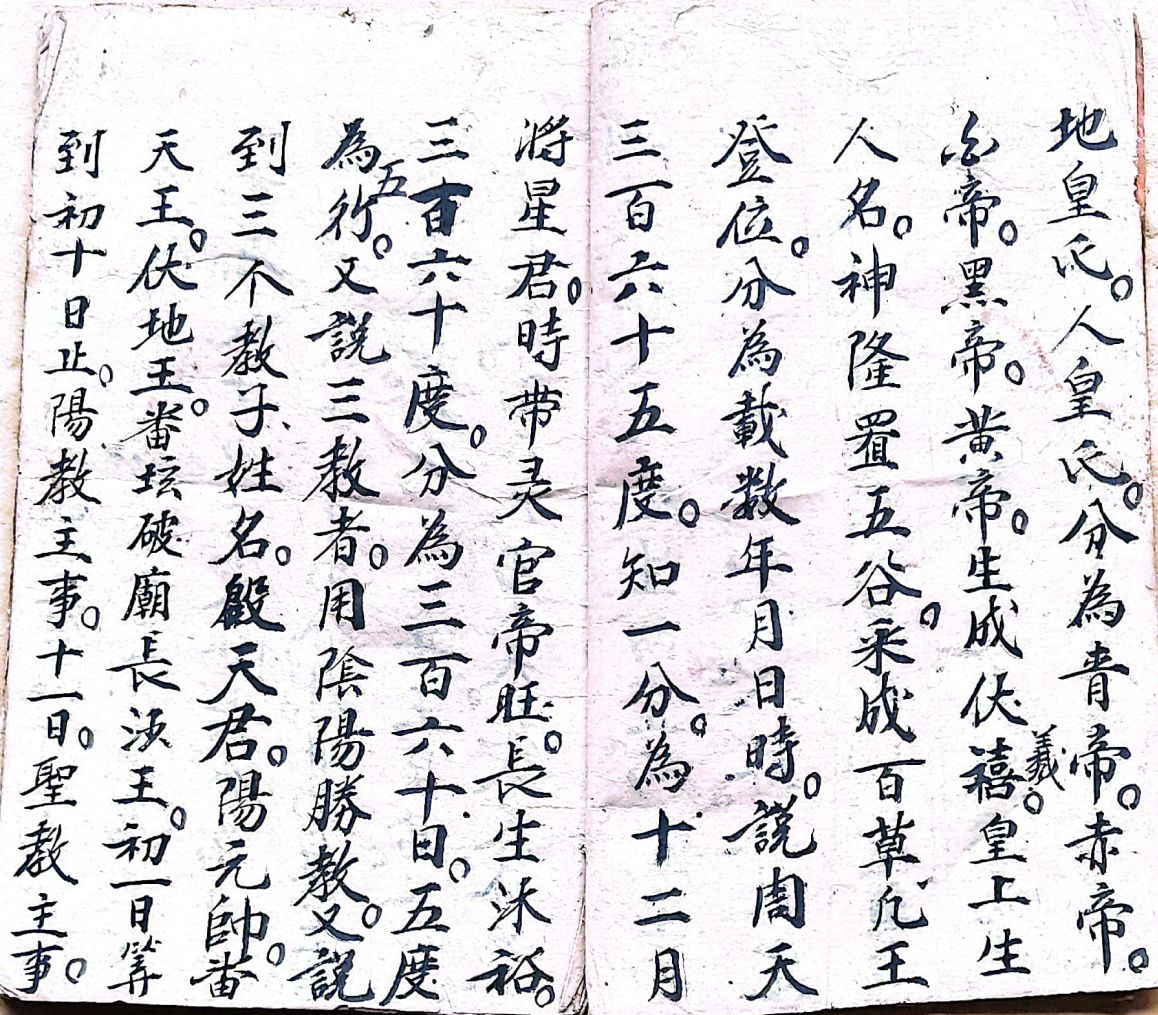 地皇氏。人皇氏。分為青帝。赤帝。
白帝。黑帝。黄帝。生成伏禧羲。皇上生
人名。神隆置五谷。采成百草凡王
登位。分為載数年月日時。説周天
三百六十五度。知一分。為十二月
将星君。時带灵官帝旺。長生沐裕。
三百六十度。分為三百六十日。五度
為五行。又説三教者。用陰陽勝教。又説
到三个教子姓名。殿天君。陽元帥。畨
天王。伏地王。畨坛破廟長法王。初一日筭
到初十日止。陽教主事。十一日。聖教主事。